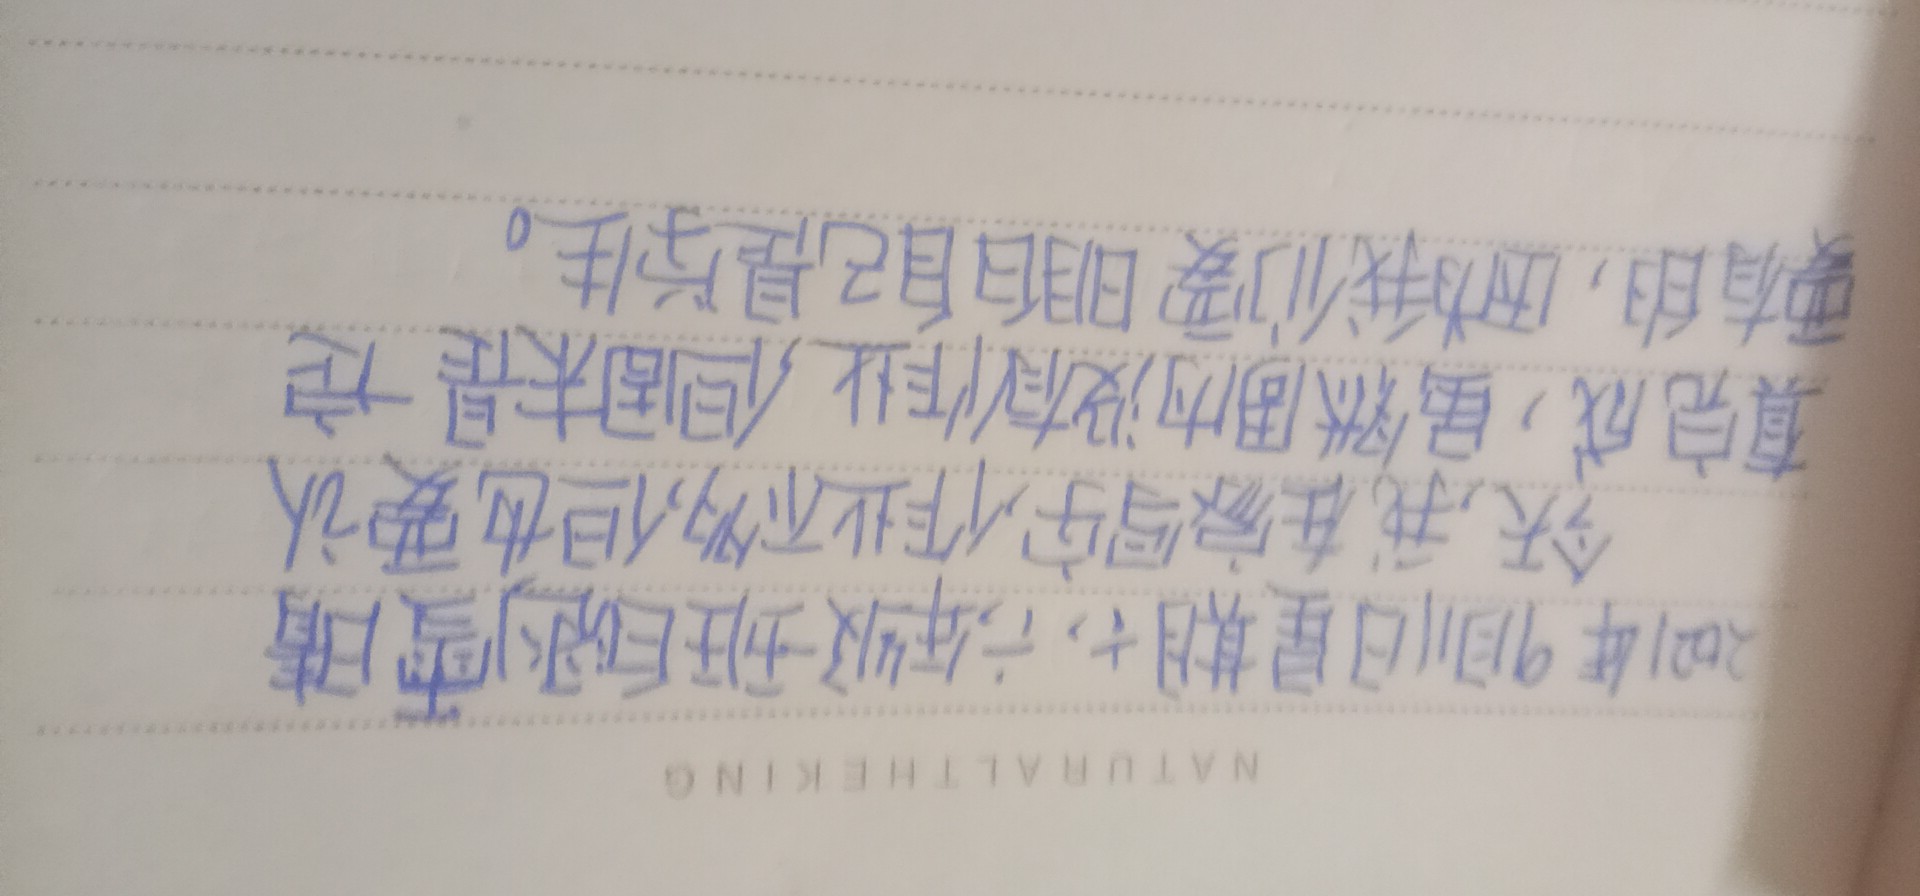 NATURALTHEKING
2021年9月11日星期六.六年级五班 晴
今天,我在家写字,作业不多,但也要认
真完成,虽然周内没有作业 但周末是一定
要有的,因为我们要明白自己是学生。